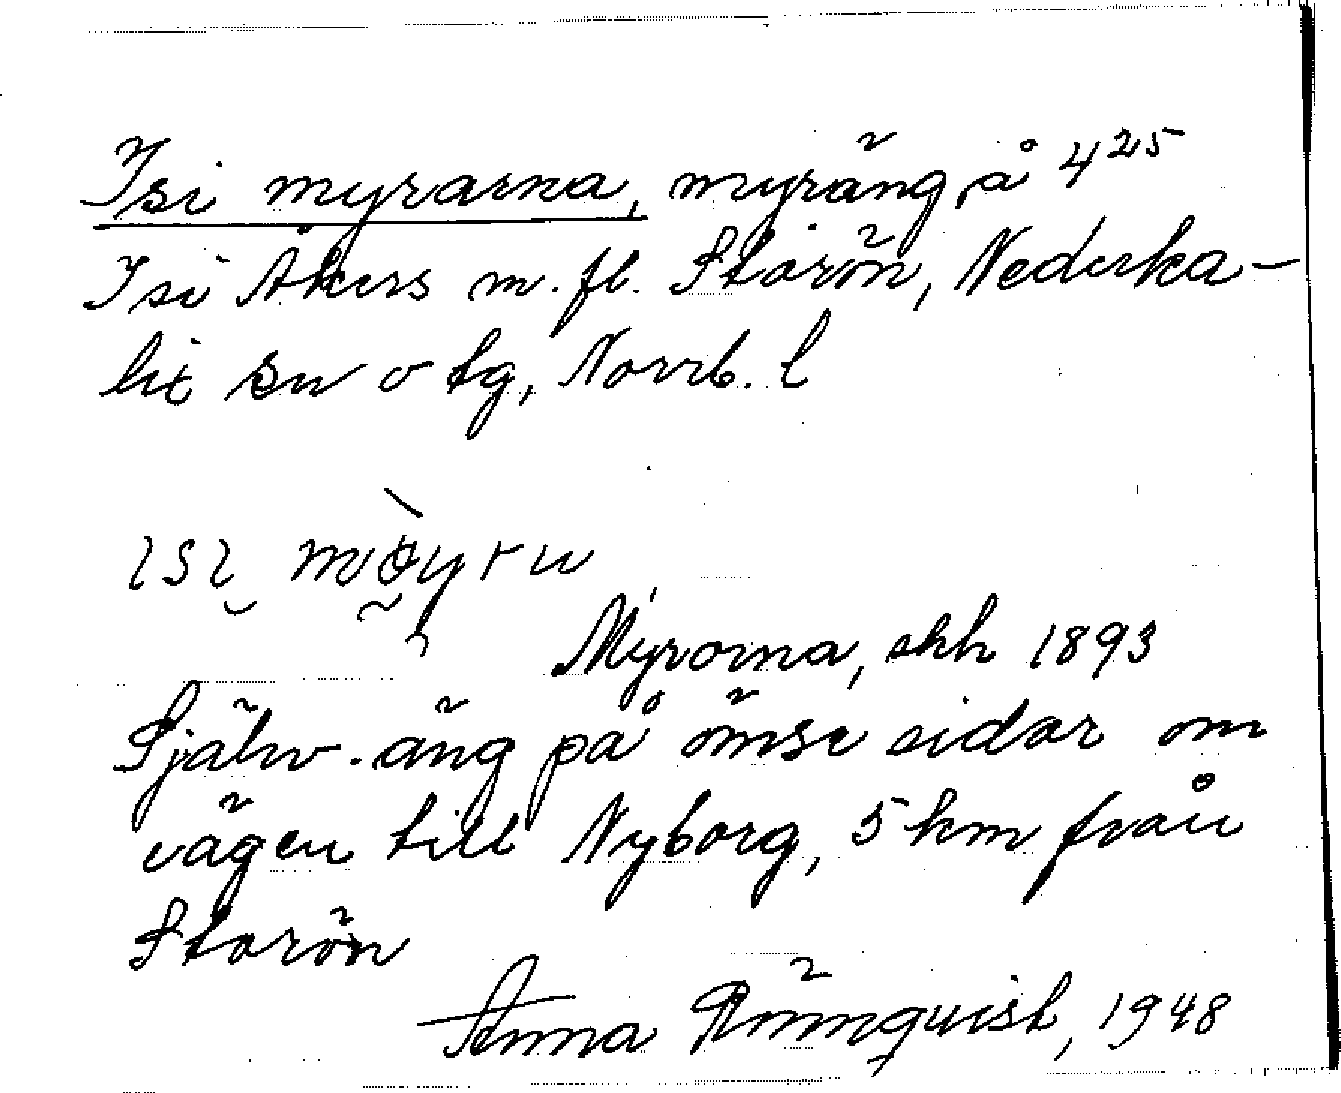 Isi myrarna, myräng på 4²⁵
Isi Åkers m. fl. Storön, Nederka-
lix sn o tg, Norrb. l
ɩsɩ
Myrorna, skh 1893
Själv-äng på ömse sidor om
vägen till Nyborg, 5 km från
Storön
Anna Römquist, 1948